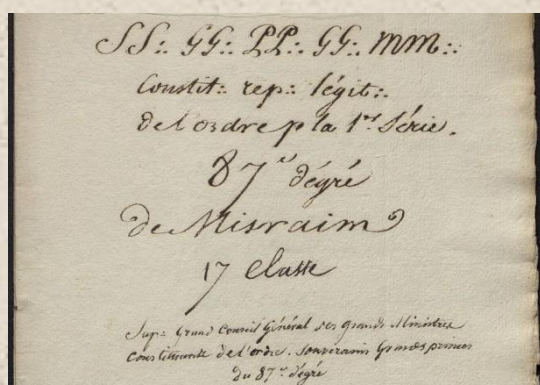 SS∴ GG∴ PP∴ GG∴ mm∴
Constit∴ rep∴ légit∴
de l'ordre p la 1re Série.
87e dégré
de Misraim
17 Classe
Sup∴ Grand Conseil Général des grands Ministres
Constituants de l'ordre. Souverains Grands princes
du 87e dégré